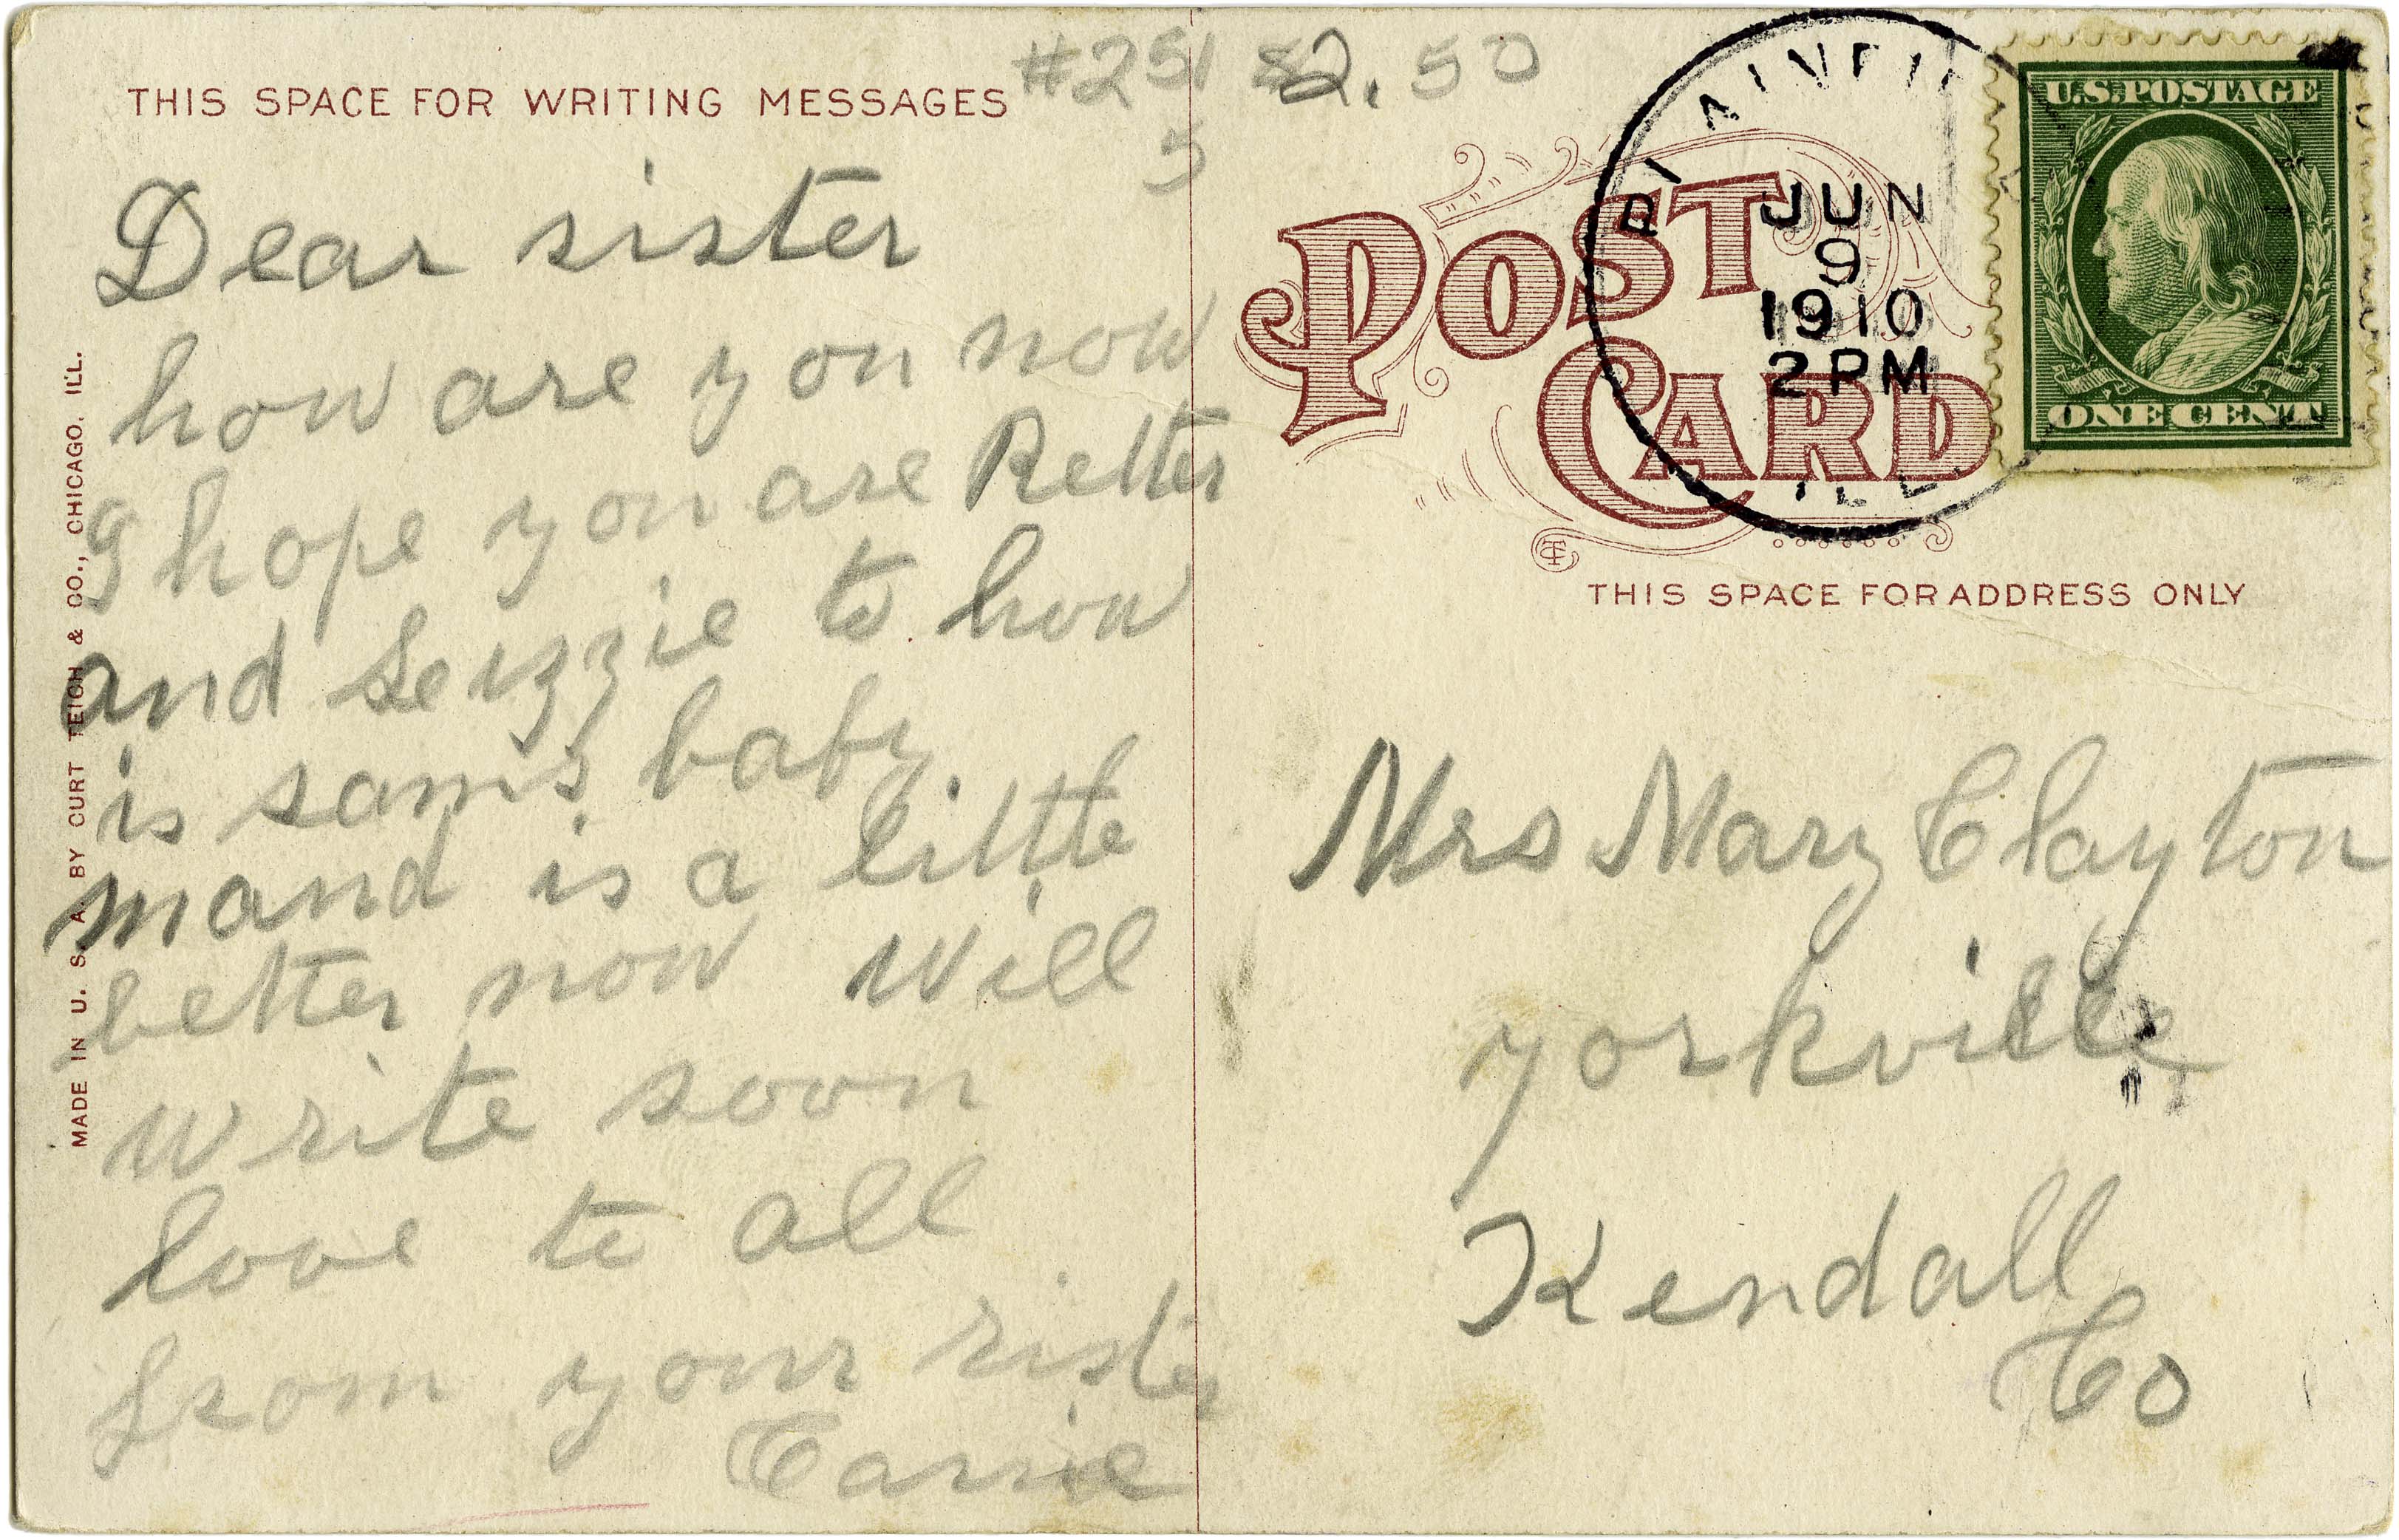 THIS SPACE FOR WRITING MESSAGES
#251 $2.50
5
Dear sister
how are you now
I hope you are Better
and Leizzie to how
is sam's baby.
mand is a little
better now will
write soon
love to all
from your sister
Carrie
MADE IN U. S. A. BY CURT TEICH & CO., CHICAGO. ILL.
POST
CARD
CT
PLAINFI
JUN
9
1910
2 PM
ILL
U.S. POSTAGE
ONE CENT
THIS SPACE FOR ADDRESS ONLY
Mrs Mary Clayton
yorkville
Kendall
Co